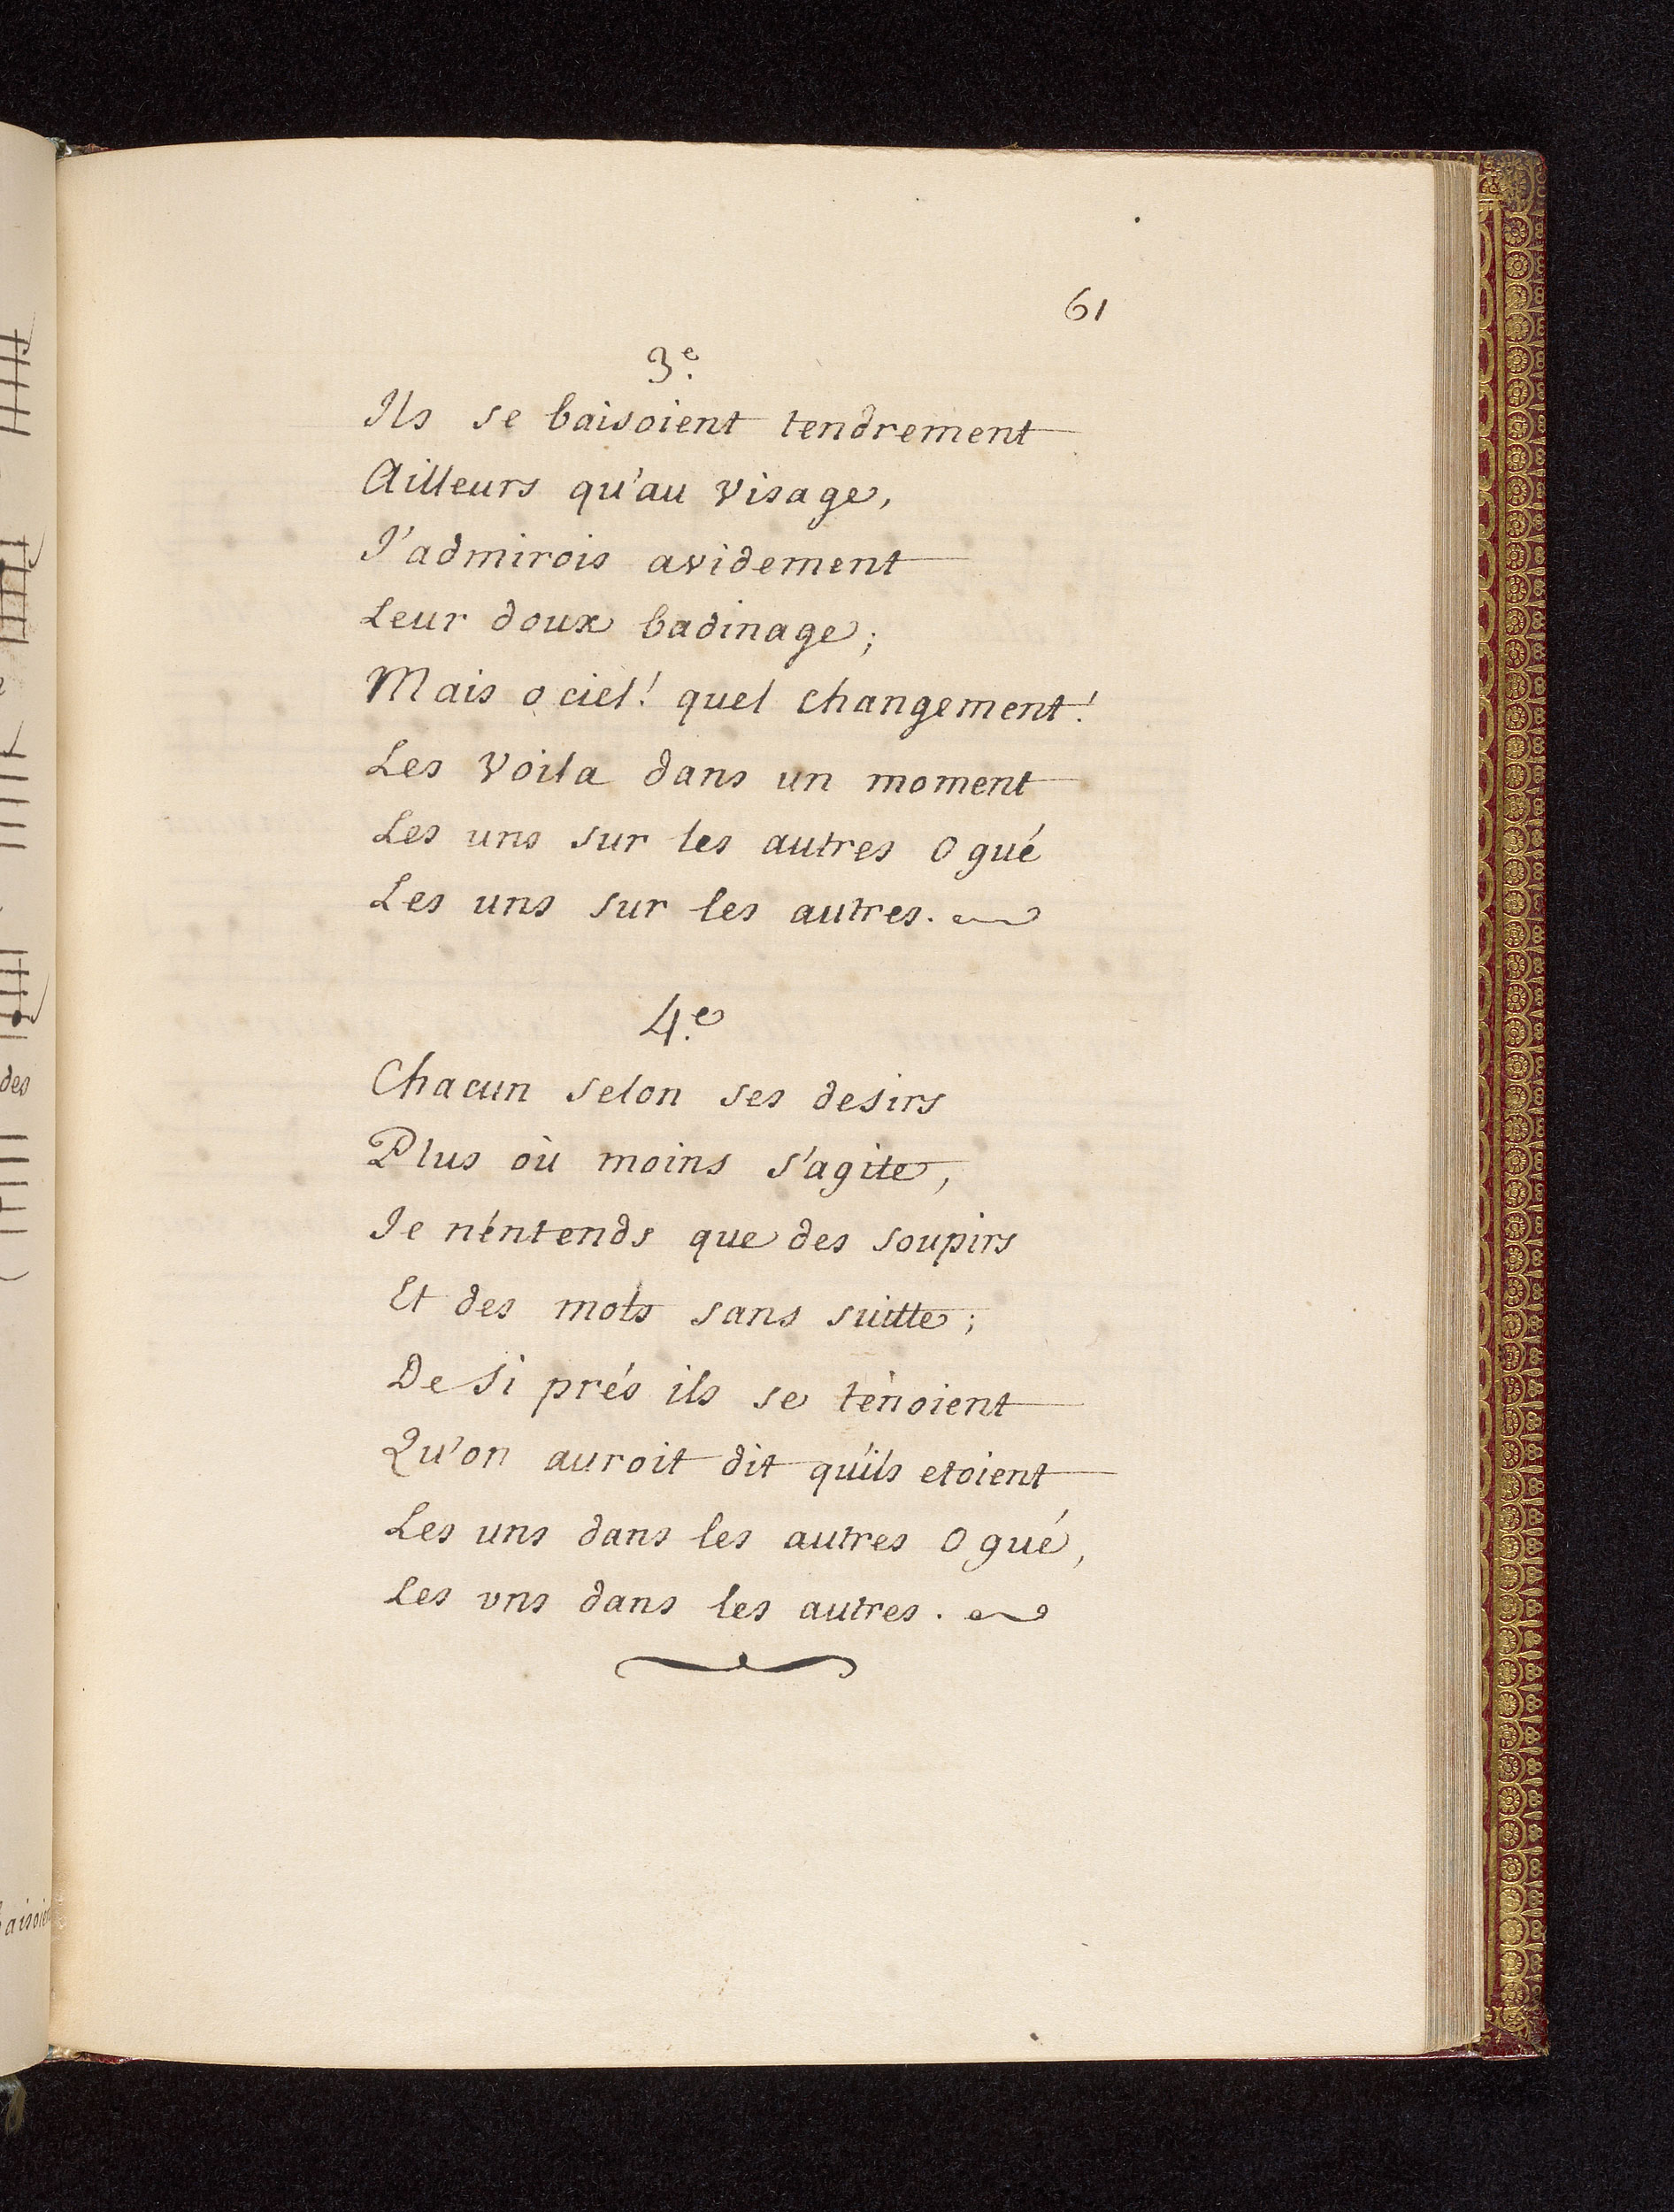 61
3.e
Ils se baisoient tendrement
Ailleurs qu'au visage,
J'admirois avidement
Leur doux badinage;
Mais o ciel! quel changement!
Les voila dans un moment
Les uns sur les autres O gué
Les uns sur les autres.
4.e
Chacun selon ses desirs
Plus où moins s'agite,
Je n'éntends que des soupirs
Et des mots sans suitte;
De si prés ils se tenoient
Qu'on auroit dit qu'ils etoient
Les uns dans les autres O gué,
Les vns dans les autres.
des